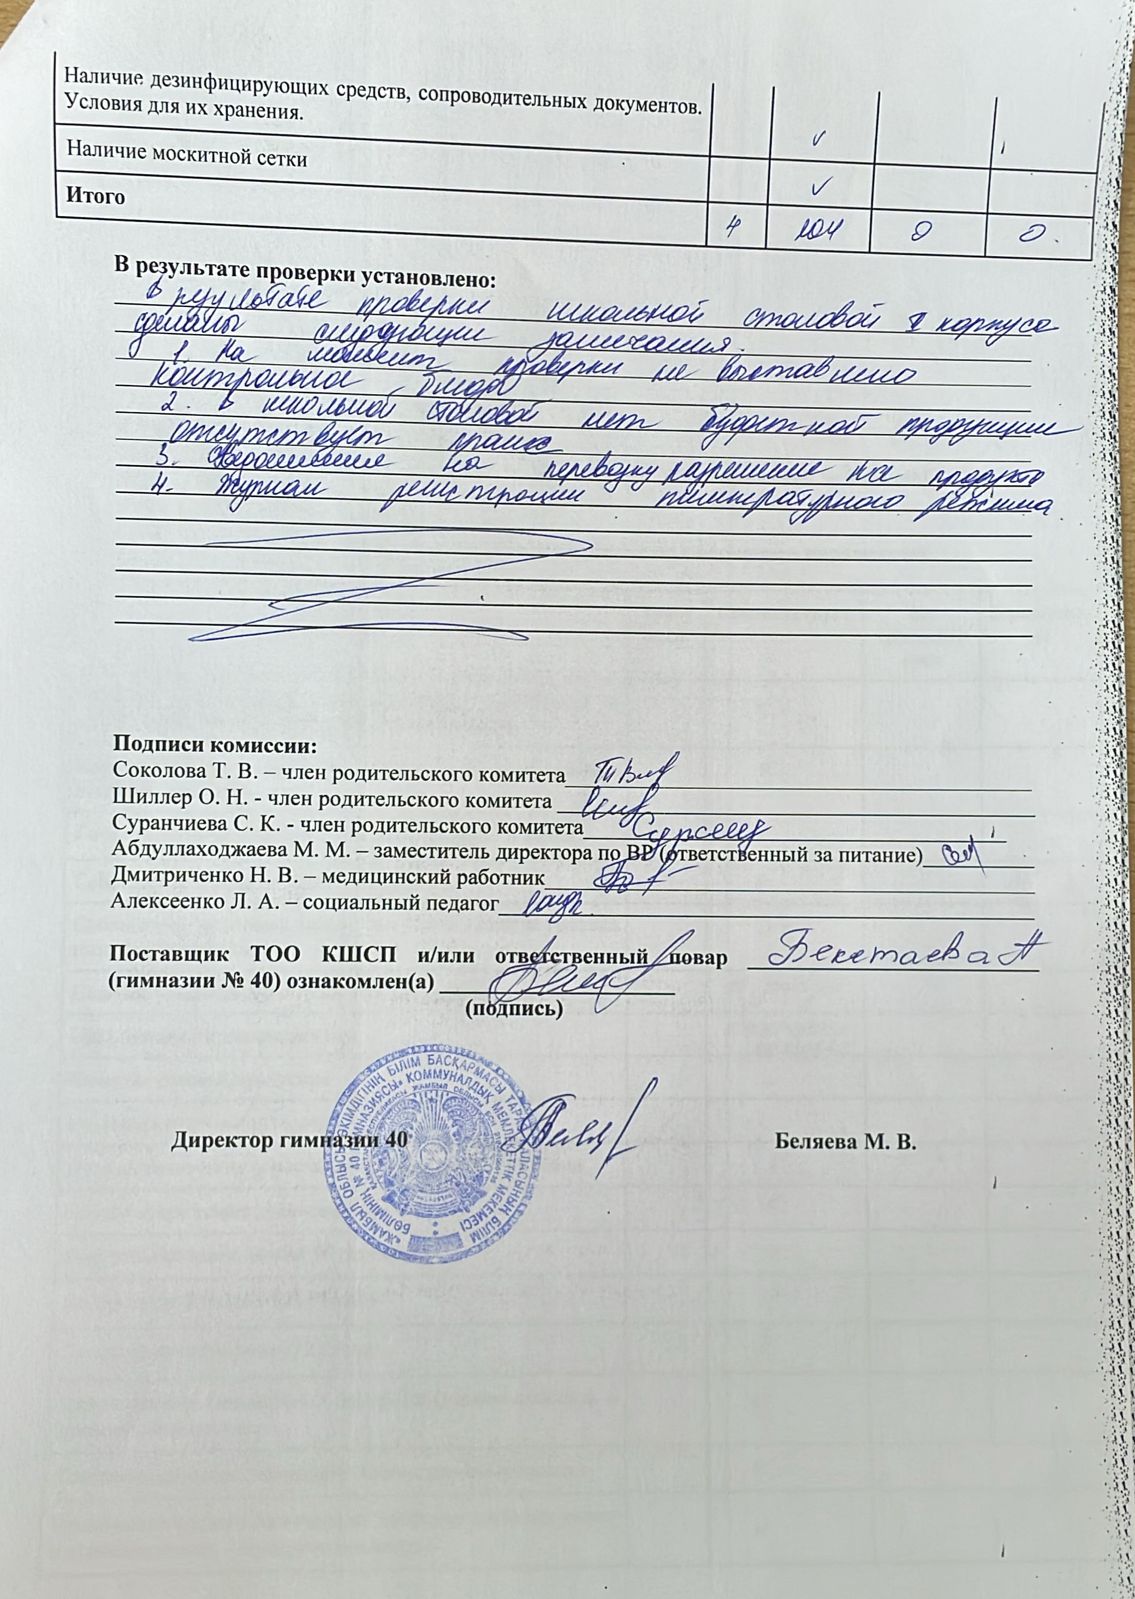 Наличие дезинфицирующих средств, сопроводительных документов.
Условия для их хранения.
Наличие москитной сетки
Итого 4 104 0 0.
В результате проверки установлено:
В результате проверки школьной столовой корпуса
сделаны следующии замечания.
1. На момент проверки не выставлено
контрольное блюдо
2. В школьной столовой нет буфетной продукции
отсутствует прайс
3. на перевозку разрешение на
4. Журнал регистрации температурного режима
Подписи комиссии:
Соколова Т. В. – член родительского комитета
Шиллер О. Н. - член родительского комитета
Суранчиева С. К. - член родительского комитета
Абдуллаходжаева М. М. – заместитель директора по ВР (ответственный за питание)
Дмитриченко Н. В. – медицинский работник
Алексеенко Л. А. – социальный педагог
Поставщик ТОО КШСП и/или ответственный повар Бекетаева А
(гимназии № 40) ознакомлен(а)
(подпись)
Директор гимназии 40 Беляева М. В.
«ЖАМБЫЛ ОБЛЫСЫ ӘКІМДІГІНІҢ БІЛІМ БАСҚАРМАСЫ ТАРАЗ ҚАЛАСЫНЫҢ БІЛІМ
БӨЛІМІНІҢ № 40 ГИМНАЗИЯСЫ» КОММУНАЛДЫҚ МЕМЛЕКЕТТІК МЕКЕМЕСІ